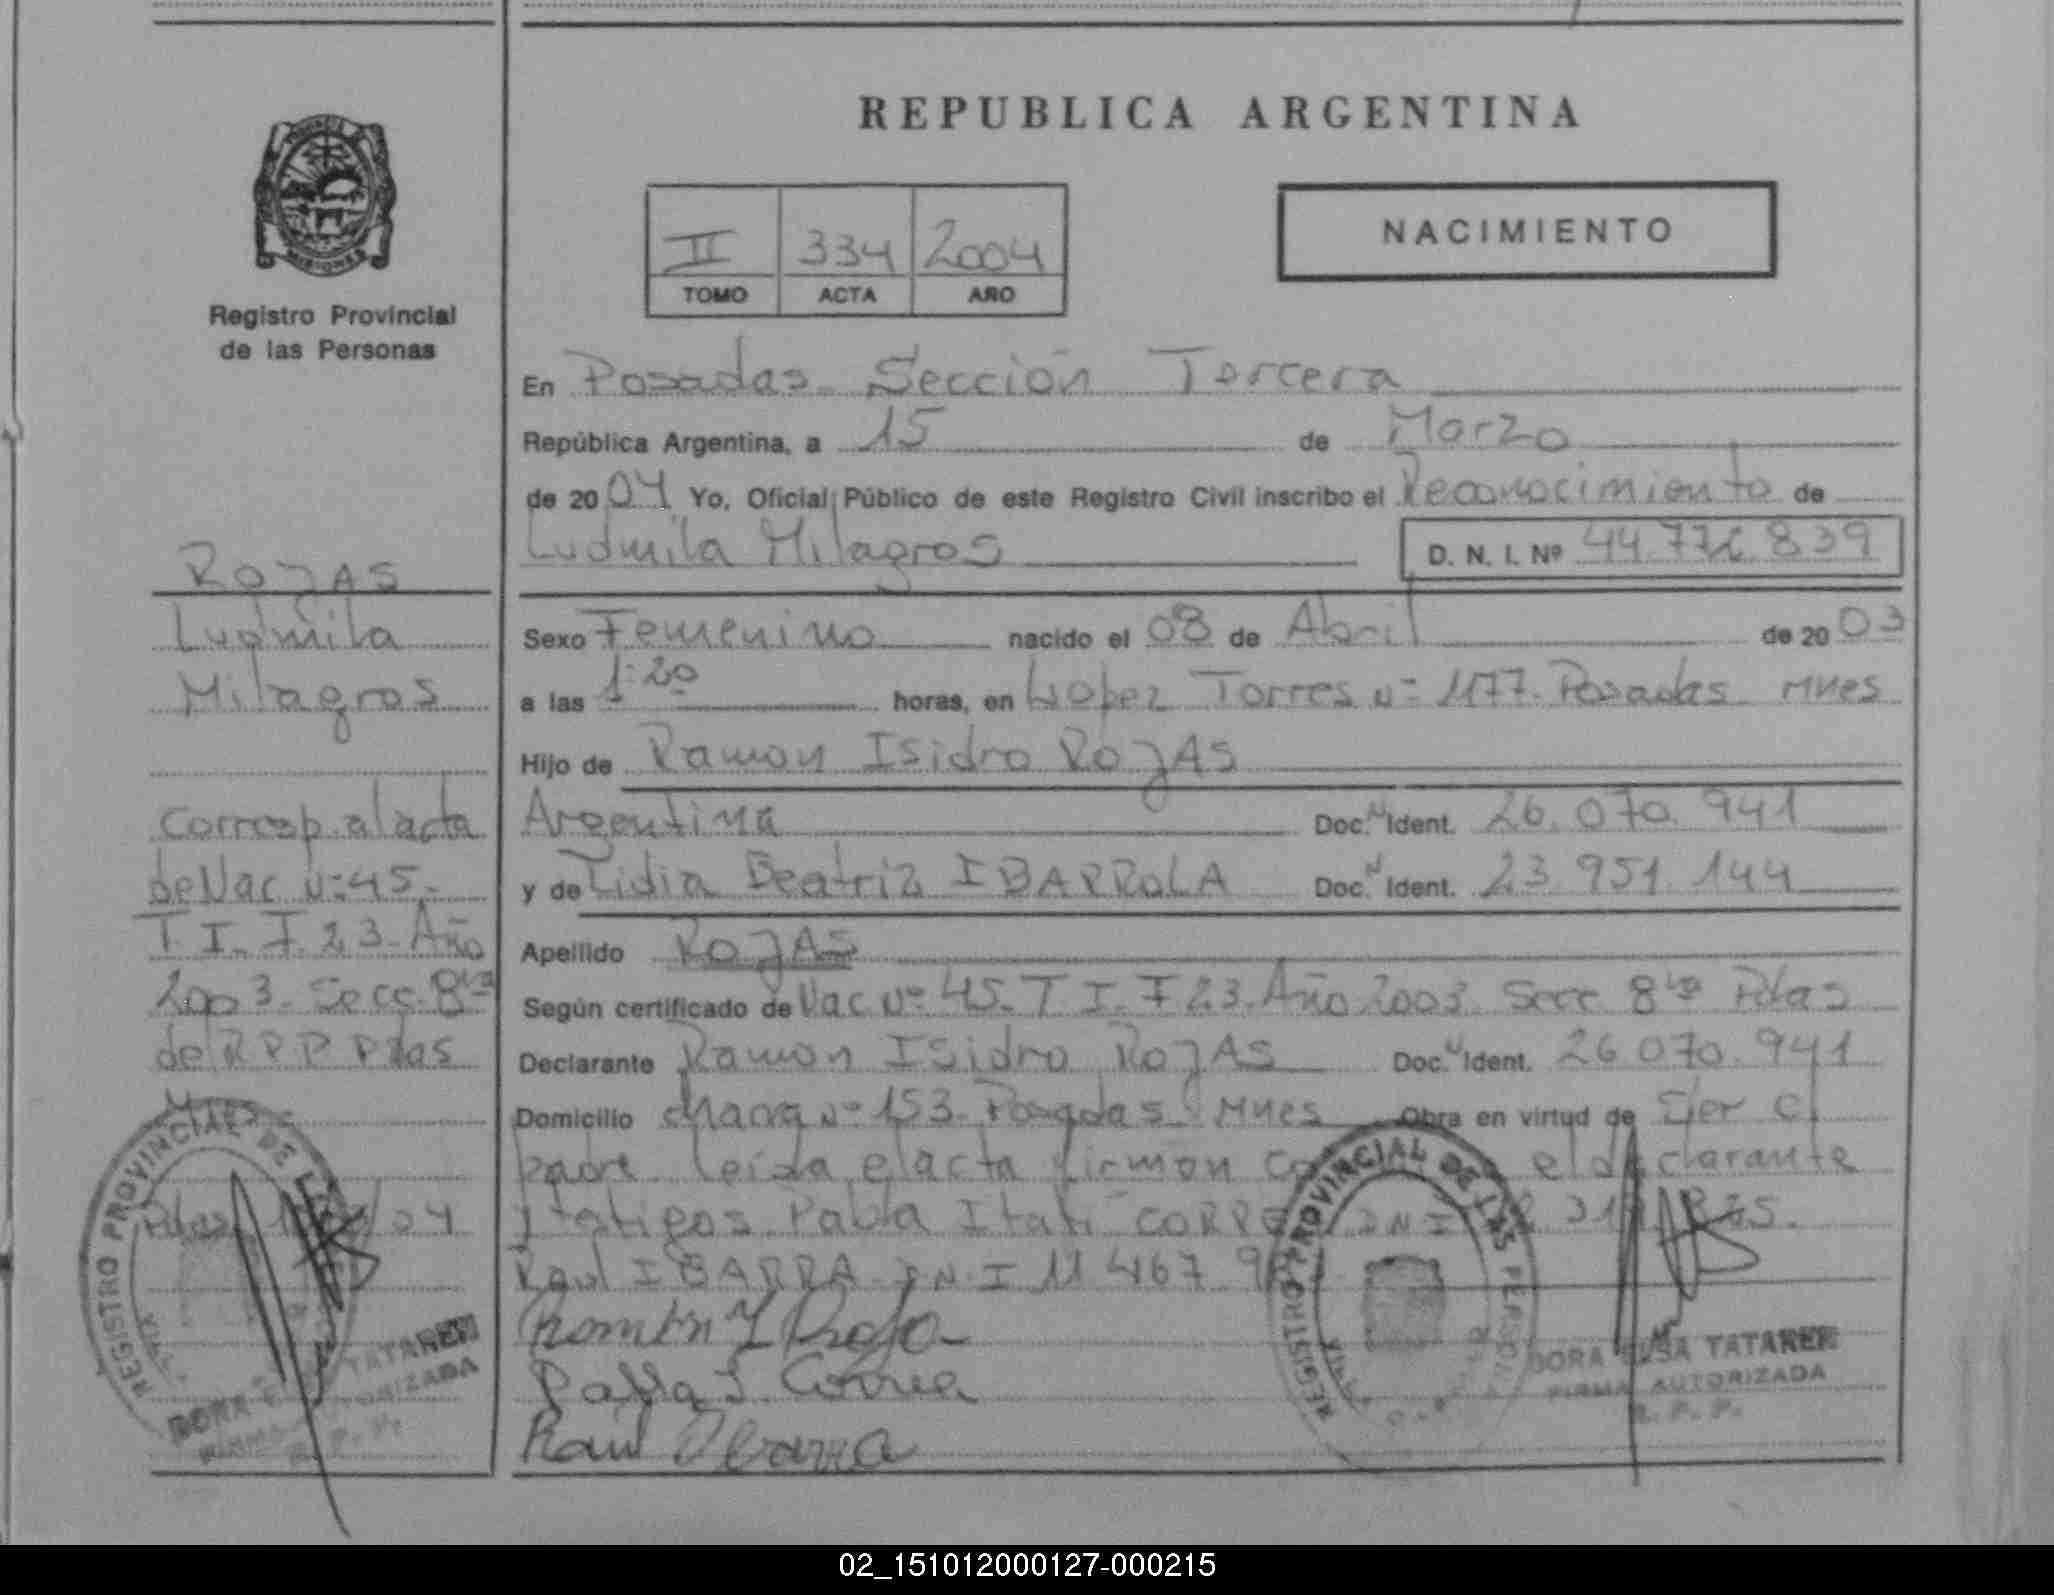 REPUBLICA ARGENTINA
PROVINCIA
MISIONES
Registro Provincial
de las Personas
II 334 2004
TOMO ACTA AÑO
NACIMIENTO
En Posadas Sección Tercera
República Argentina, a 15 de Marzo
de 2004 Yo, Oficial Público de este Registro Civil inscribo el Reconocimiento de
Ludmila Milagros D. N. I. Nº 44.772.839
Sexo Femenino nacido el 08 de Abril de 2003
a las 1:20 horas, en Lopez Torres Nº 1177. Posadas Mnes
Hijo de Ramon Isidro ROJAS
Argentina Doc. N Ident. 26.070.941
y de Lidia Beatriz IBARROLA Doc. N Ident. 23.951.144
Apellido ROJAS
Según certificado de Nac Nº 45. T I. F 23. Año 2003. Secc 8va Pdas
Declarante Ramon Isidro ROJAS Doc. N Ident. 26 070.941
Domicilio chacra Nº 153. Posadas Mnes Obra en virtud de Ser el
padre leida el acta firman el declarante
y testigos Pabla Itati DNI
Raul IBARRA D.N.I 11 467
Ramon I Roja
Pabla I. Correa
Raul Ibarra
ROJAS
Ludmila
Milagros
Corresp. al acta
de Nac Nº 45.
T. I. F. 23. Año
2003. Secc. 8va
de R P P Pdas
Mnes
Pdas 04
REGISTRO PROVINCIAL DE LAS
TATAREN
AUTORIZADA
R. P. P.
REGISTRO PROVINCIAL DE LAS PERSONAS
DORA ELSA TATAREN
FIRMA AUTORIZADA
R. P. P.
02_151012000127-000215